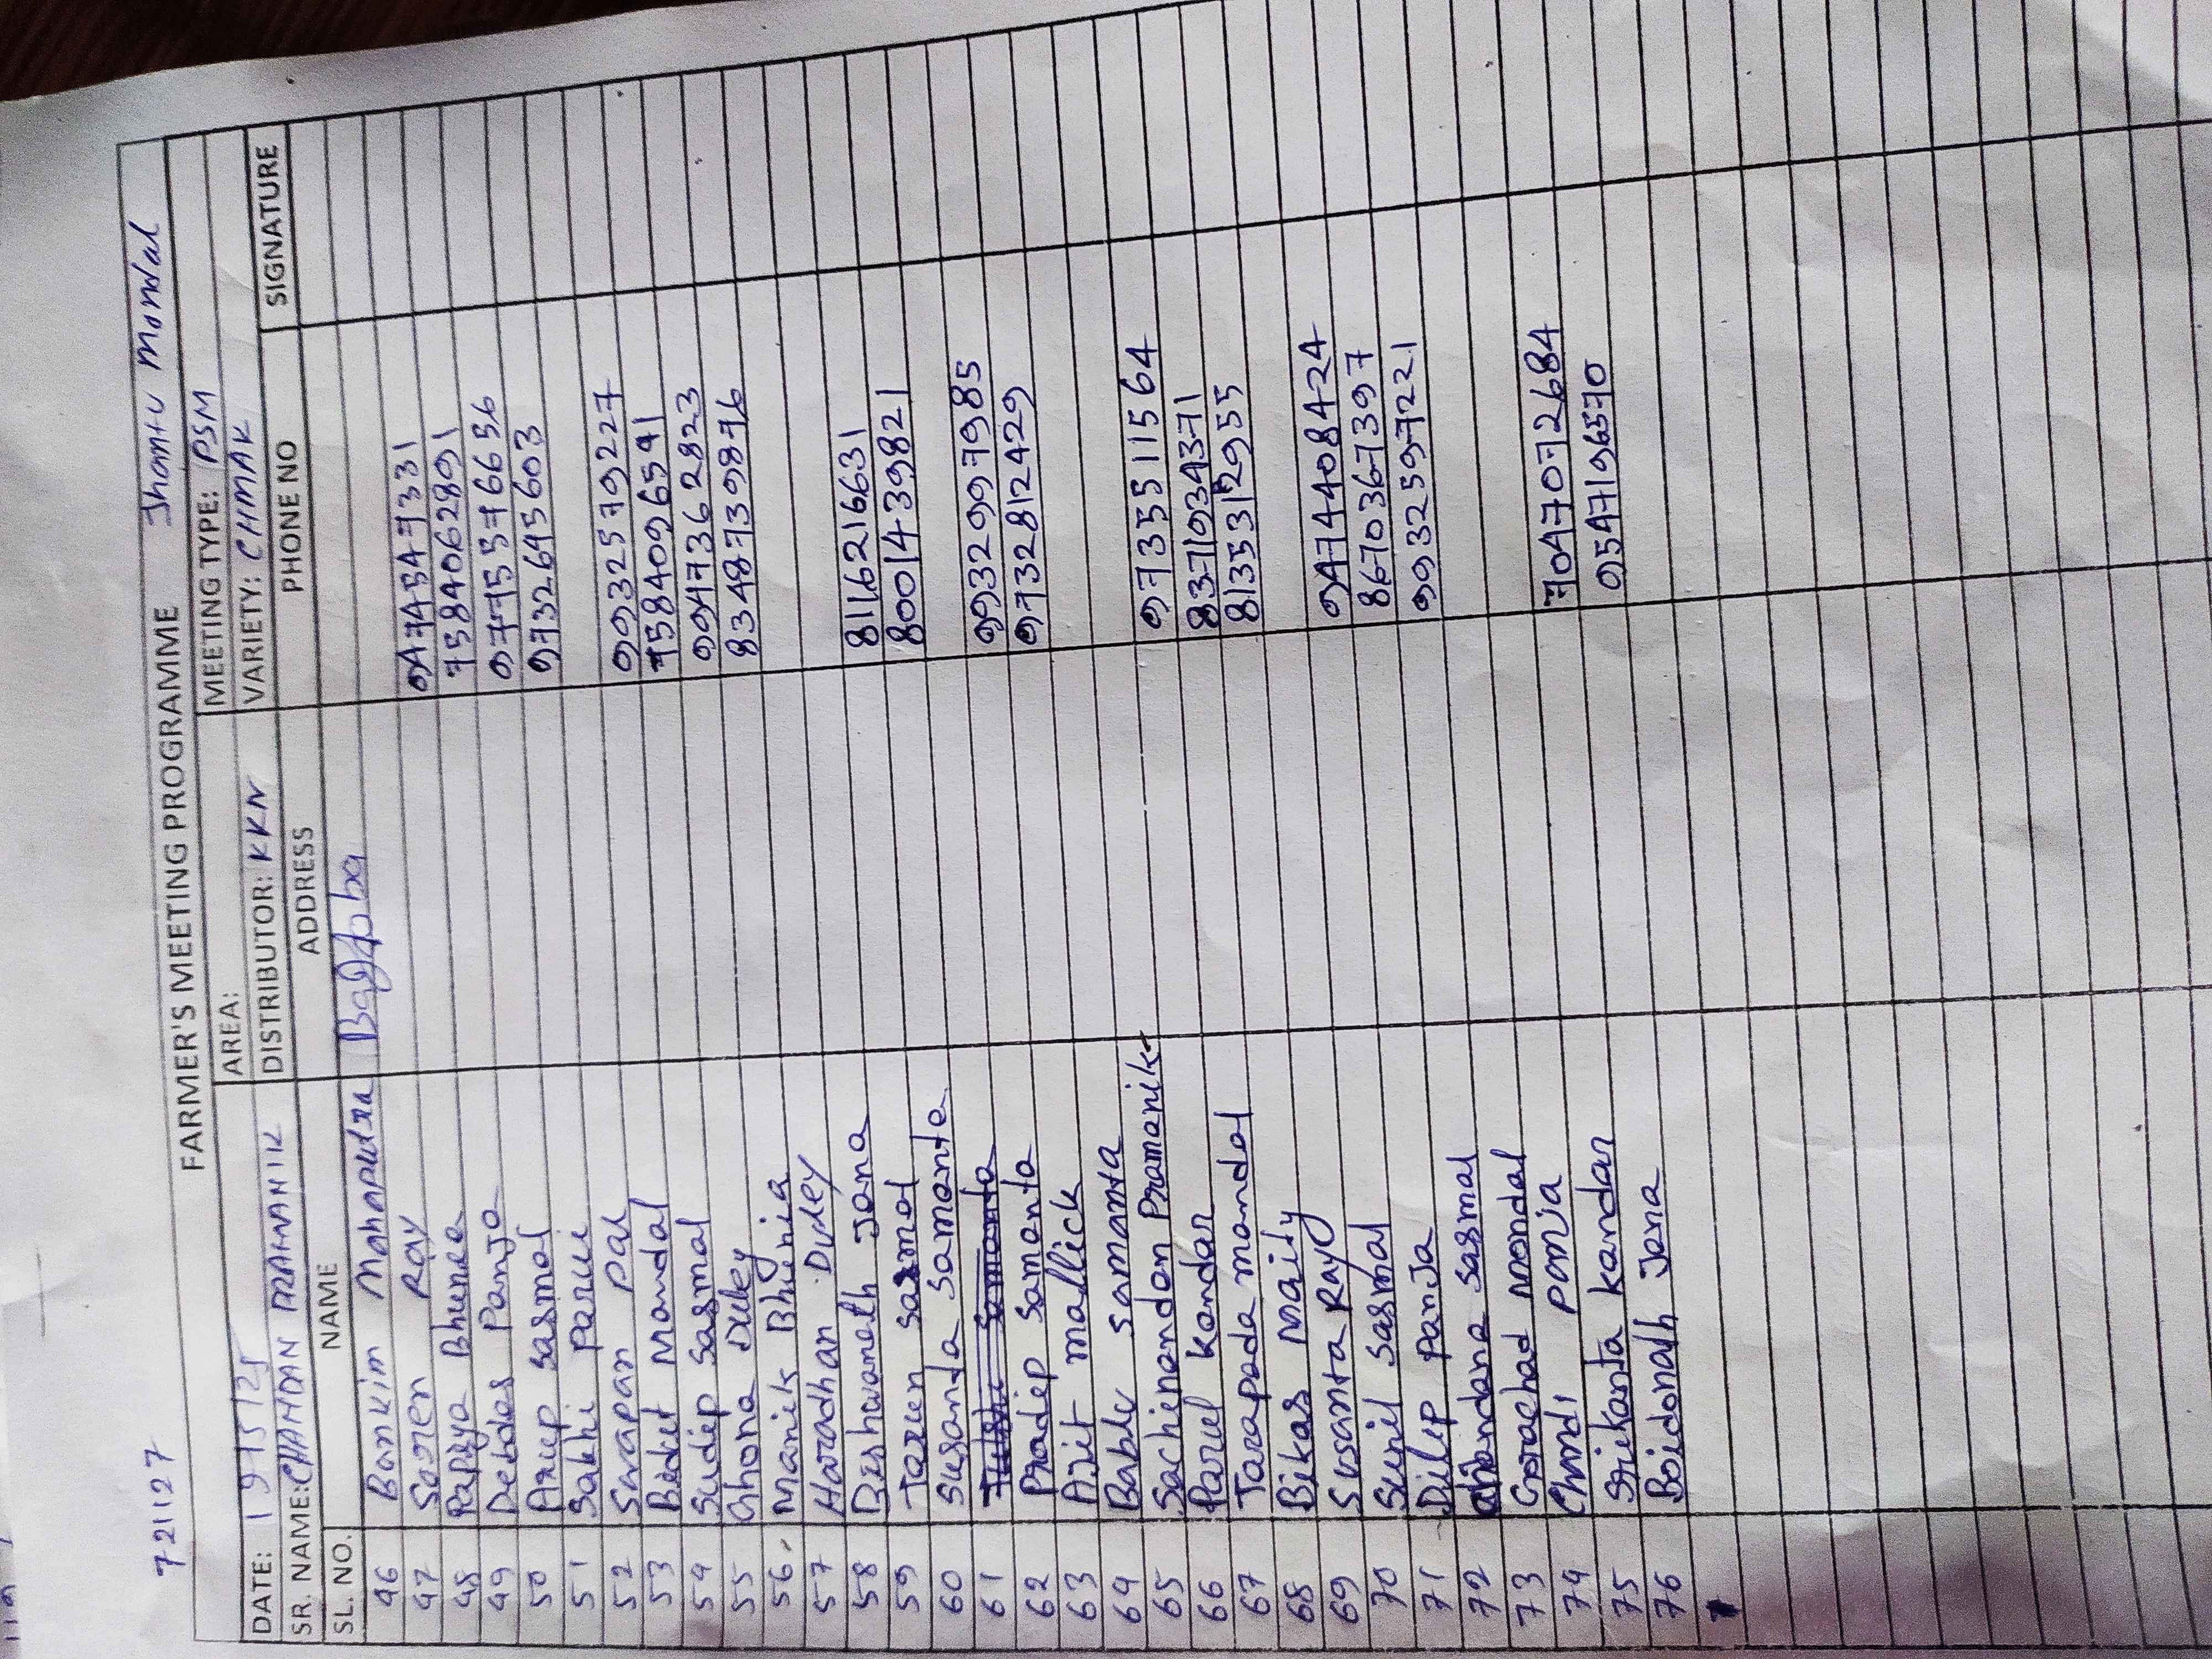 721127 Jhantu Mondal
FARMER'S MEETING PROGRAMME
DATE: 19/5/25 AREA: MEETING TYPE: PSM
SR. NAME: CHANDAN PRAMANIK DISTRIBUTOR: KKN VARIETY: CHMAK
SL. NO. NAME ADDRESS PHONE NO SIGNATURE
46 Bankim Mahapatra Bagdoba
47 Saren Ray 9474547331
48 Papiya Bhunea 7584062891
49 Debdas Panja 9775576656
50 Arup sasmal 9732645603
51 Sakhi Parue
52 Swapan Pal 9932579227
53 Mondal 7584096591
54 Sudip sasmal 9947362823
55 Ghona Duley 8348739876
56, Manik Bhunia
57 Haradhan Duley
58 Bishwanath Jana 8116216631
59 Tarun sasmal 8001439821
60 Susanta samanta
61 Tulshi Samanta 9932997985
62 Pradip samanta 9732812429
63 Ajit mallick
64 Bablu samanta
65 Sachinandan Pramanik 9735511564
66 Parul kandar 8371934371
67 Tarapada mandal 8135312955
68 Bikas Maity
69 Susanta Ray 9474408424
70 Sunil sasmal 8670367397
71 Dilip Panja 9932597221
72 Chandana sasmal
73 Gorachad mondal
74 Chandi Panja 7047072684
75 Srikanta kandar 9547196570
76 Boidonath Jana